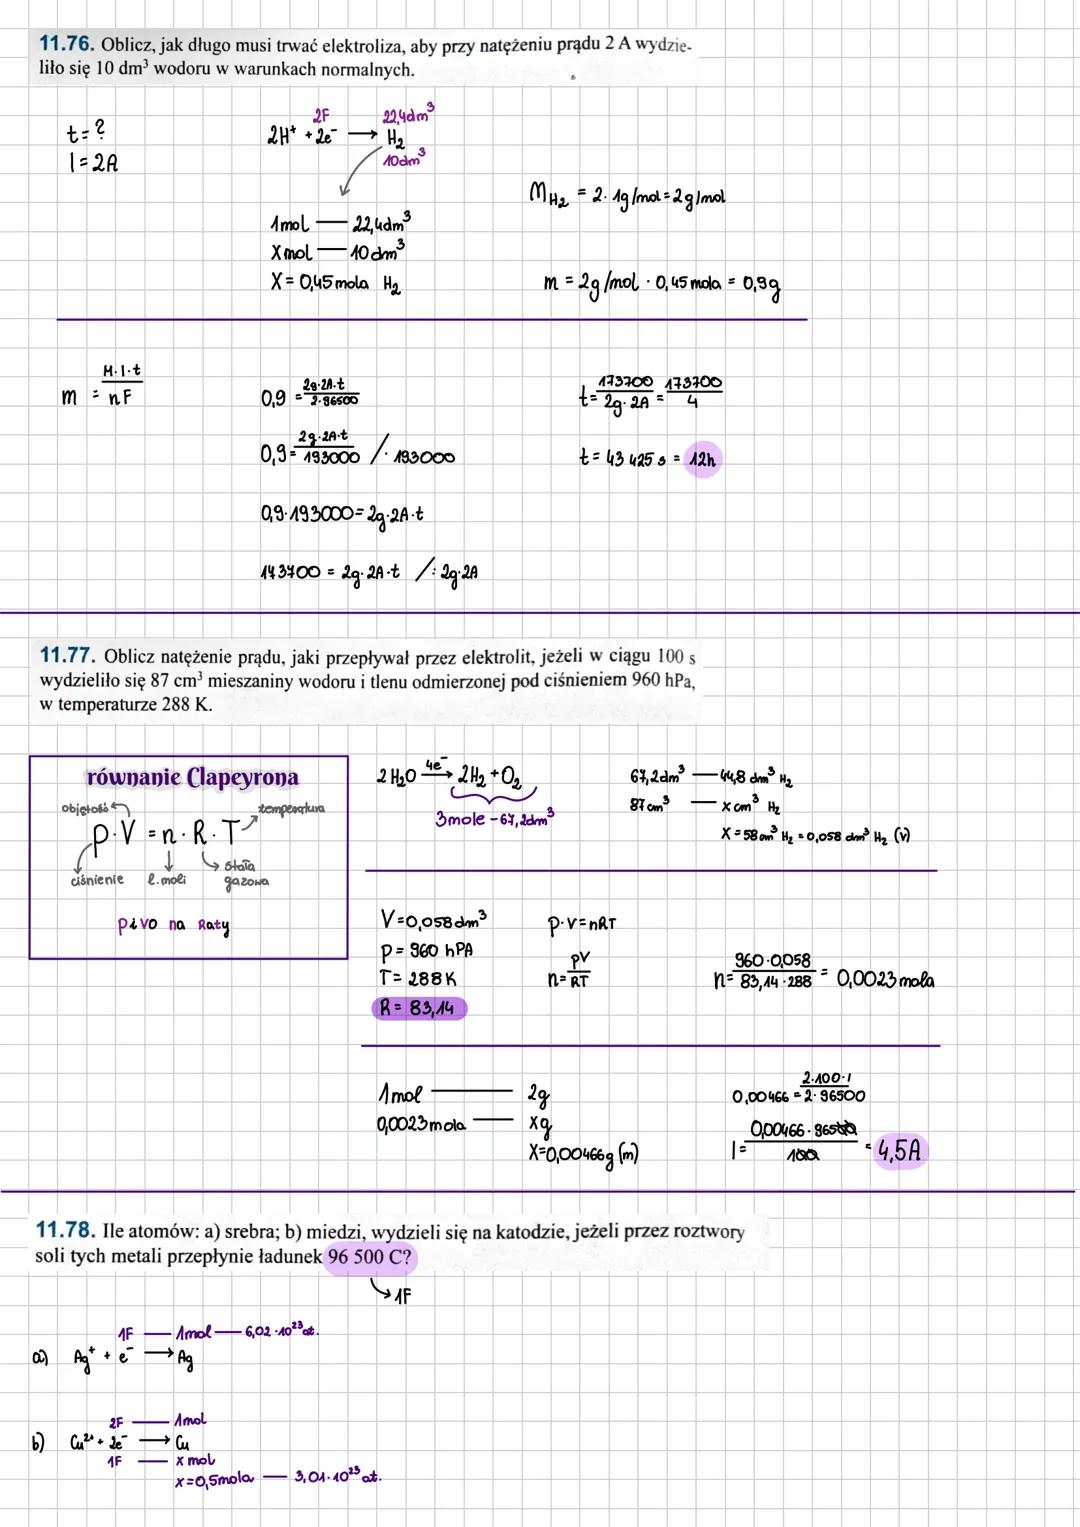 11.76. Oblicz, jak długo musi trwać elektroliza, aby przy natężeniu prądu 2 A wydzie-
liło się 10 dm³ wodoru w warunkach normalnych.
t = ?
I = 2A
2F 22,4dm³
2H⁺ + 2e⁻ → H₂
10dm³
1mol — 22,4dm³
X mol — 10dm³
X = 0,45 mola H₂
M H₂ = 2 · 1g/mol = 2g/mol
m = 2g/mol · 0,45 mola = 0,9g
m = M·I·t / nF
0,9 = 2g·2A·t / 2·96500
0,9 = 2g·2A·t / 193000 /· 193000
0,9·193000 = 2g·2A·t
173700 = 2g·2A·t /: 2g·2A
t = 173700 / 2g·2A = 173700 / 4
t = 43 425 s = 12h
11.77. Oblicz natężenie prądu, jaki przepływał przez elektrolit, jeżeli w ciągu 100 s
wydzieliło się 87 cm³ mieszaniny wodoru i tlenu odmierzonej pod ciśnieniem 960 hPa,
w temperaturze 288 K.
równanie Clapeyrona
objętość temperatura
p·V = n·R·T
ciśnienie l.moli stała gazowa
piVo na Raty
2H₂O 4e⁻→ 2H₂ + O₂
3mole - 67,2dm³
67,2dm³ — 44,8 dm³ H₂
87cm³ — x cm³ H₂
X = 58cm³ H₂ = 0,058 dm³ H₂ (V)
V = 0,058dm³
p = 960 hPA
T = 288K
R = 83,14
p·V = nRT
n = pV / RT
n = 960·0,058 / 83,14·288 = 0,0023 mola
1mol — 2g
0,0023 mola — xg
X = 0,00466g (m)
0,00466 = 2·100·I / 2·96500
I = 0,00466·96500 / 100 = 4,5A
11.78. Ile atomów: a) srebra; b) miedzi, wydzieli się na katodzie, jeżeli przez roztwory
soli tych metali przepłynie ładunek 96 500 C?
→ 1F
1F — 1mol — 6,02·10²³ at.
a) Ag⁺ + e⁻ → Ag
2F — 1mol
b) Cu²⁺ + 2e⁻ → Cu
1F — x mol
x = 0,5mola — 3,01·10²³ at.